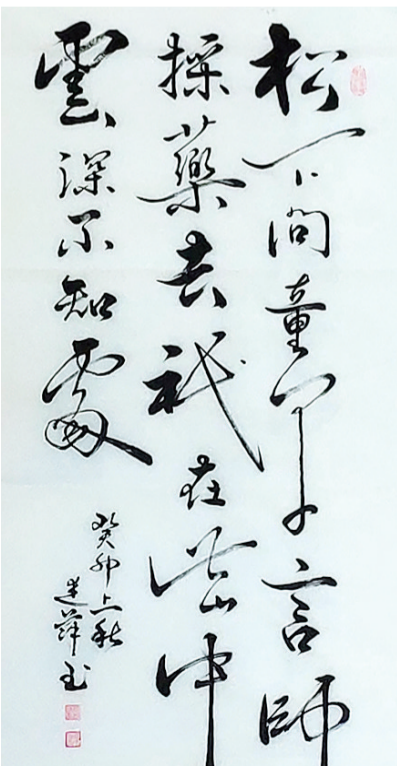 松下問童子言師
採藥去祇在此山中
雲深不知處
癸卯上秋